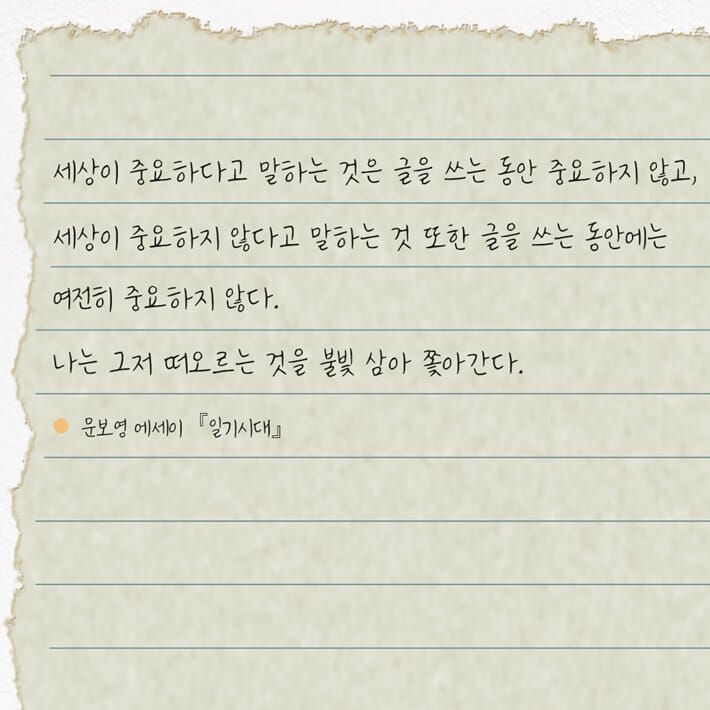 세상이 중요하다고 말하는 것은 글을 쓰는 동안 중요하지 않고,
세상이 중요하지 않다고 말하는 것 또한 글을 쓰는 동안에는
여전히 중요하지 않다.
나는 그저 떠오르는 것을 불빛 삼아 쫓아간다.
문보영 에세이 『일기시대』